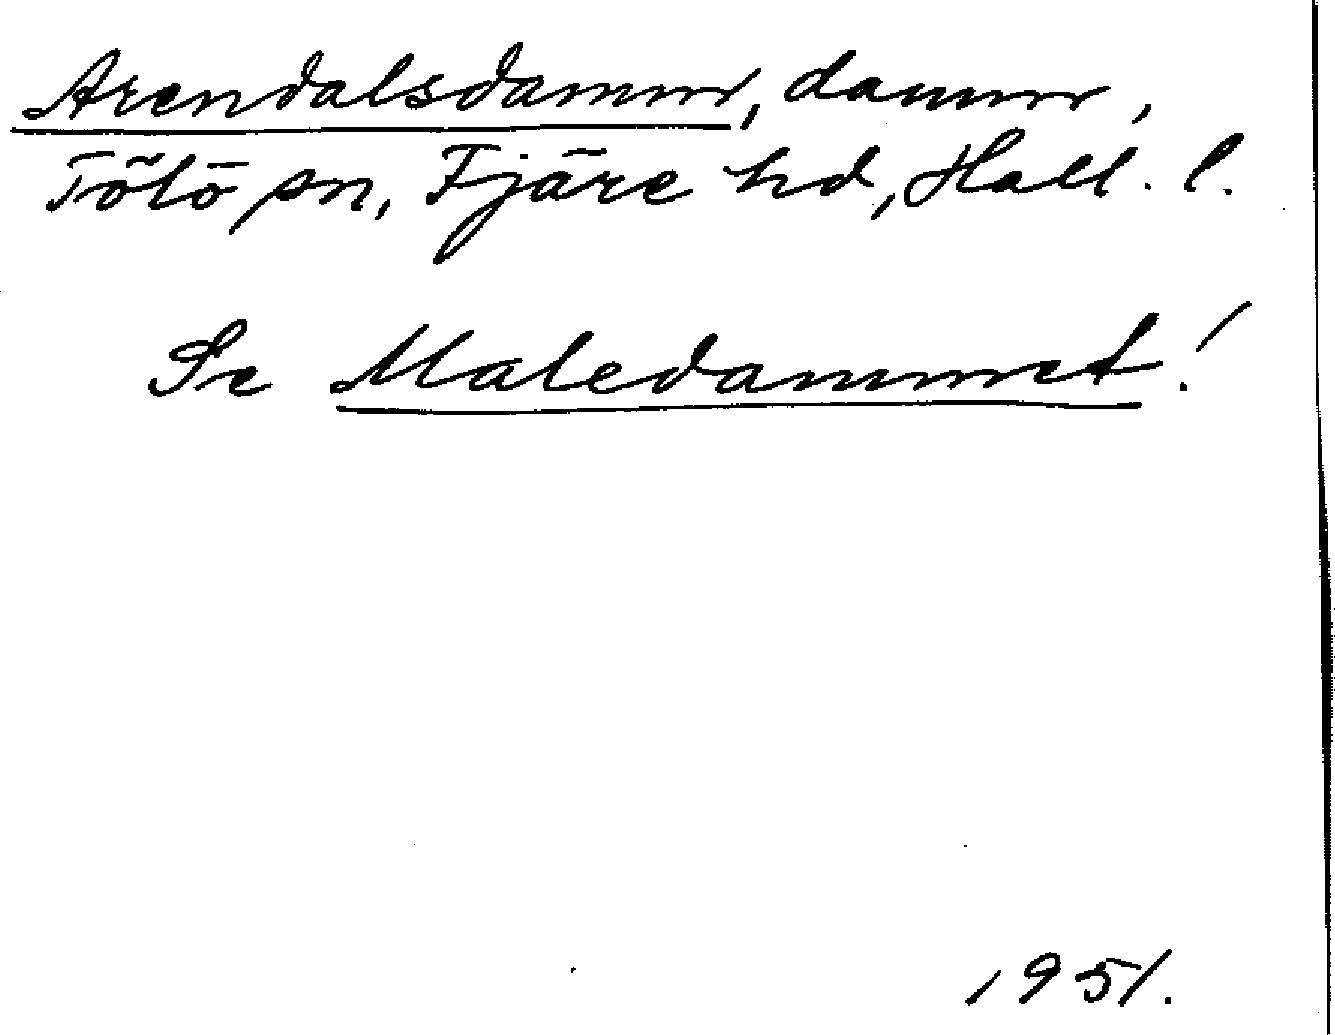 Arendalsdamm, damm,
Tölö sn, Fjäre hd, Hall. l.
Se Maledammet!
1951.